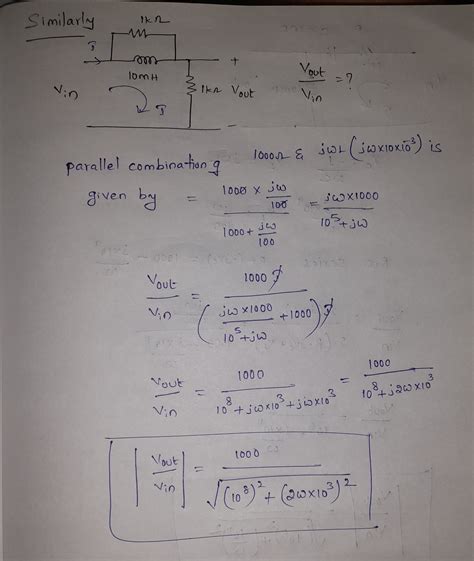 Similarly
1kΩ
I
+
10mH
Vin
I
1kΩ
Vout
Vout/Vin = ?
-
parallel combination of 1000Ω & jωL (jω×10×10^-3) is
given by = (1000 × jω/100)/(1000 + jω/100) = (jω×1000)/(10^5+jω)
Vout/Vin = 1000 I/((jω×1000)/(10^5+jω) + 1000) I
Vout/Vin = 1000/(10^8+jω×10^3+jω×10^3) = 1000/(10^8+j2ω×10^3)
|Vout/Vin| = 1000/√((10^8)^2 + (2ω×10^3)^2)